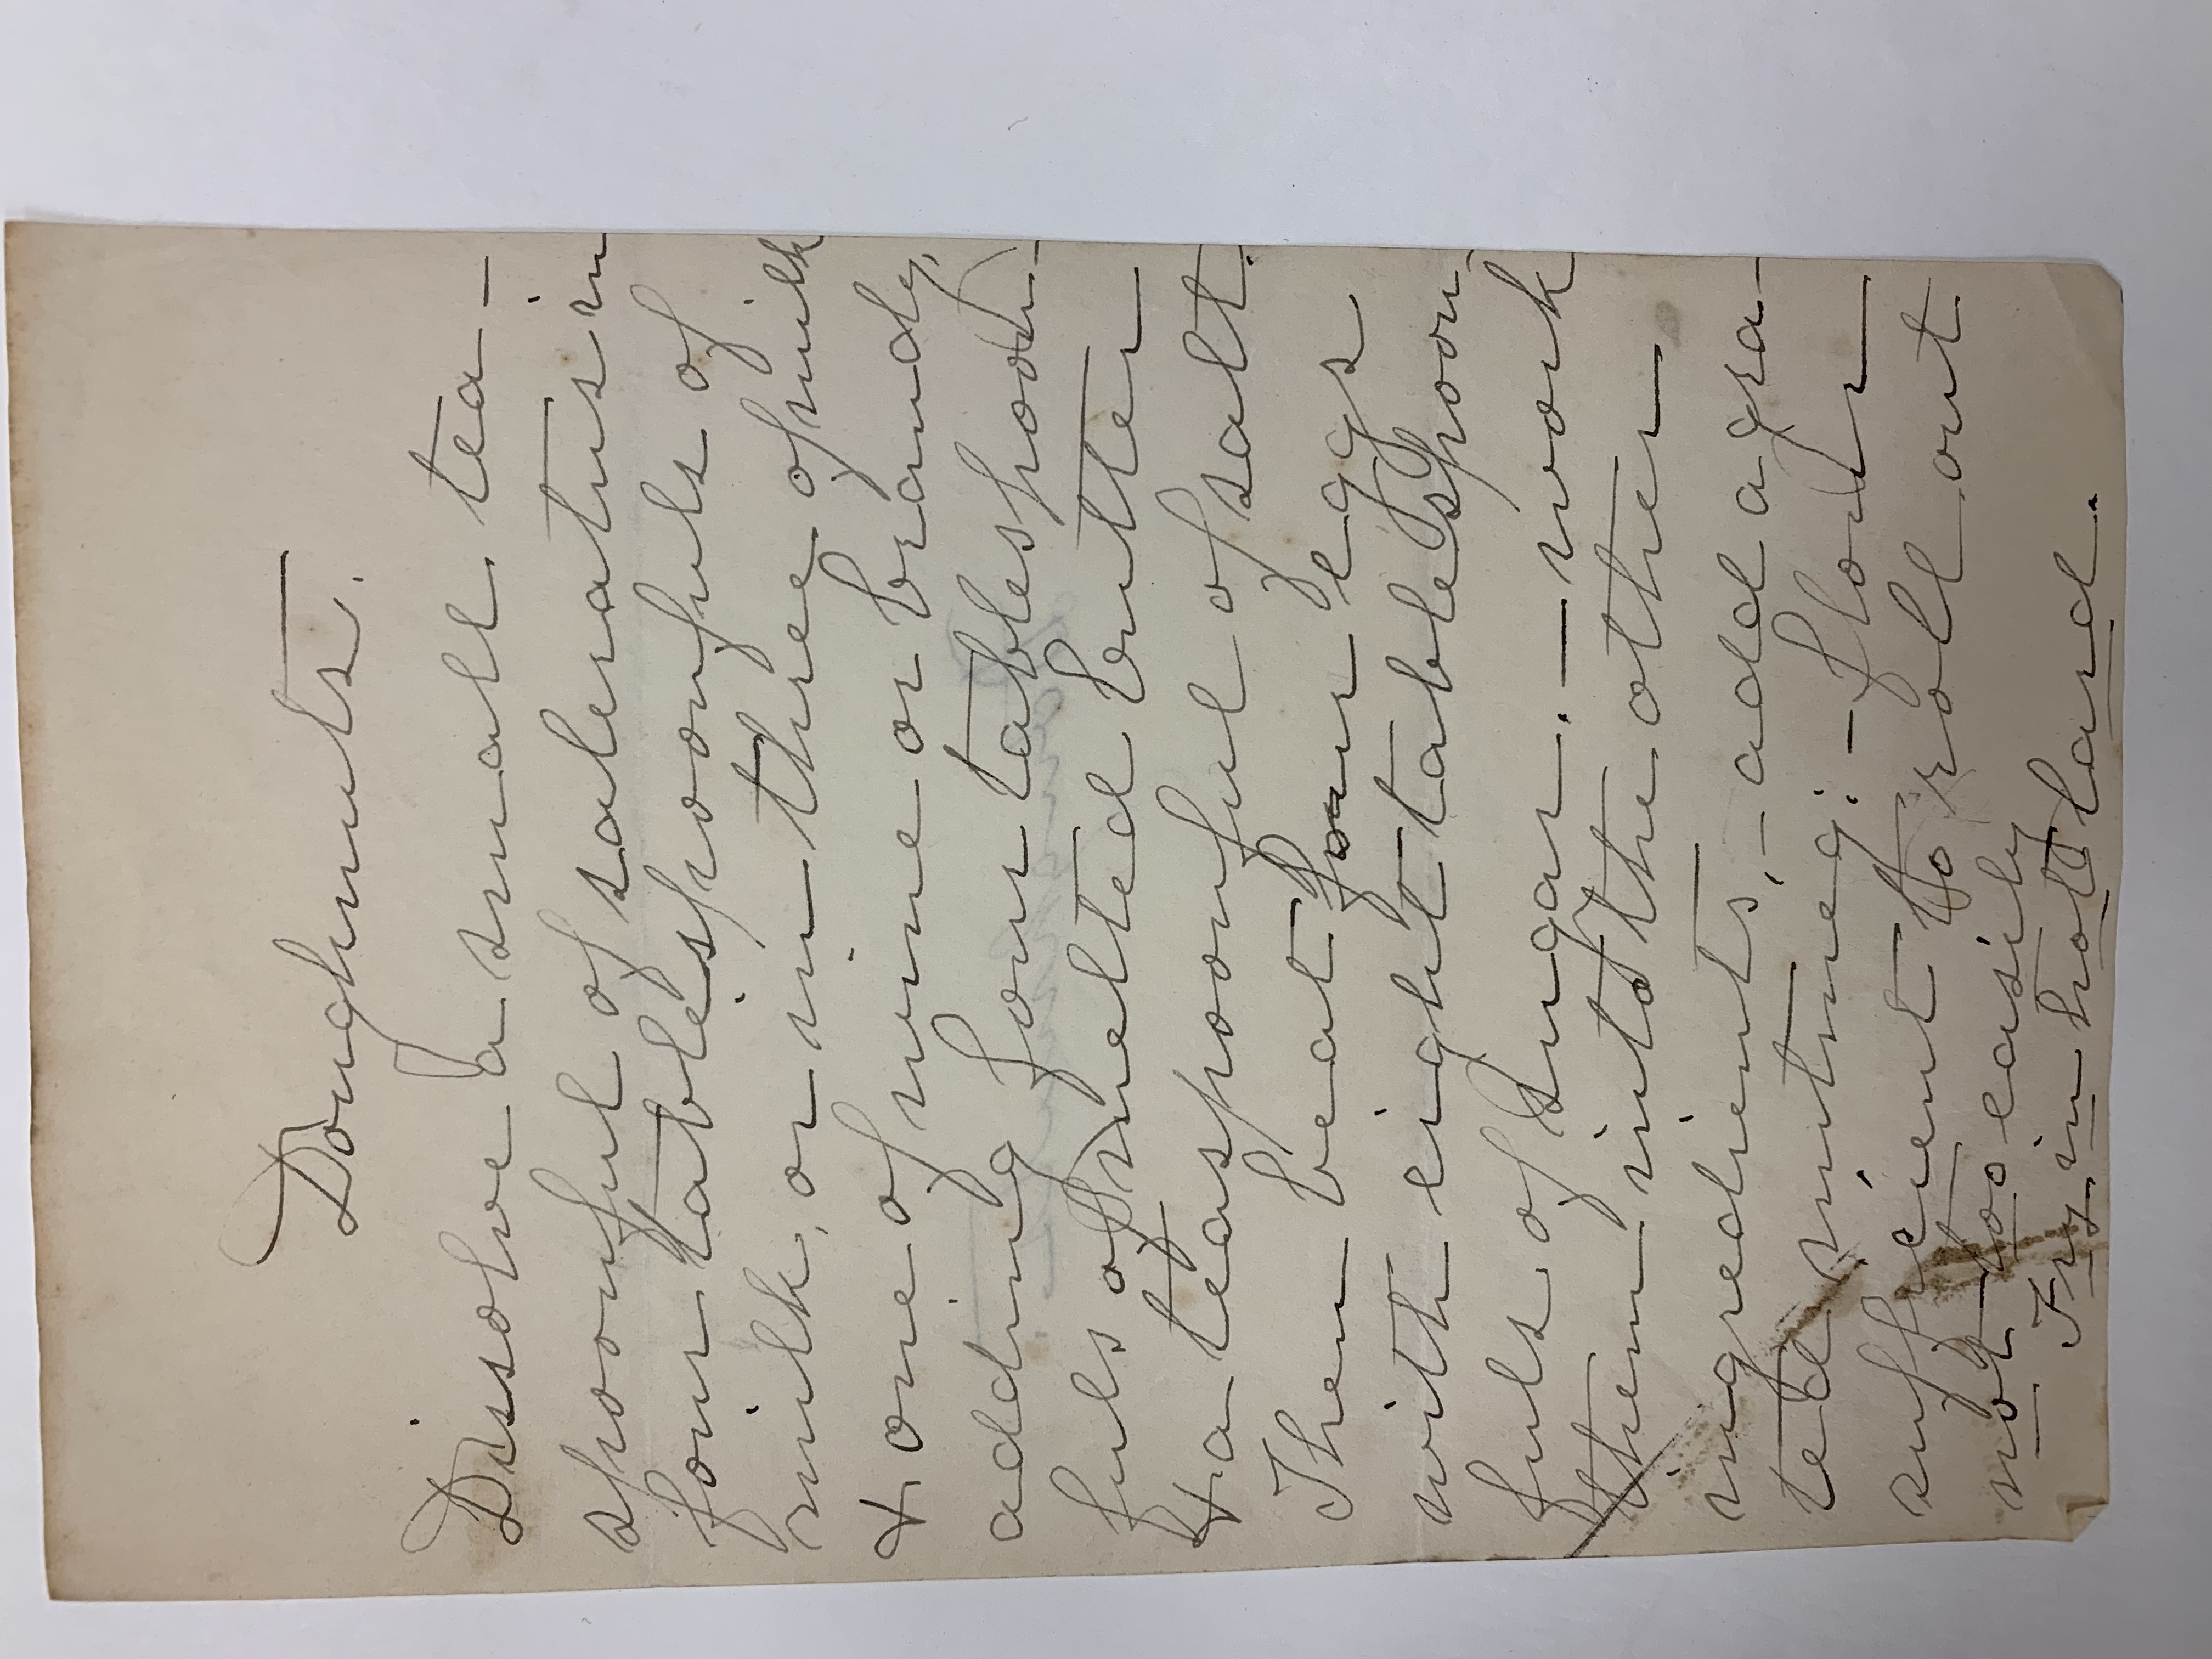 Doughnuts.
Dissolve a small tea-
spoonful of saleratus in
four tablespoonfuls of
milk, or in three of milk
& one of wine or brandy,
adding four tablespoon-
fuls of melted butter
& a teaspoonful of salt.
Then beat four eggs
with eight tablespoon-
fuls of sugar. — work
them into the other
ingredients, — add a gra-
ted nutmeg: — flour
sufficient to roll out
not too easily
Fry in hot lard.